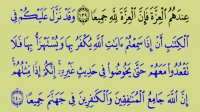 عِندَهُمُ ٱلْعِزَّةَ فَإِنَّ ٱلْعِزَّةَ لِلَّهِ جَمِيعًا ١٣٩ وَقَدْ نَزَّلَ عَلَيْكُمْ فِى
ٱلْكِتَٰبِ أَنْ إِذَا سَمِعْتُمْ ءَايَٰتِ ٱللَّهِ يُكْفَرُ بِهَا وَيُسْتَهْزَأُ بِهَا فَلَا
تَقْعُدُوا۟ مَعَهُمْ حَتَّىٰ يَخُوضُوا۟ فِى حَدِيثٍ غَيْرِهِۦٓ ۚ إِنَّكُمْ إِذًا مِّثْلُهُمْ ۗ
إِنَّ ٱللَّهَ جَامِعُ ٱلْمُنَٰفِقِينَ وَٱلْكَٰفِرِينَ فِى جَهَنَّمَ جَمِيعًا ١٤٠